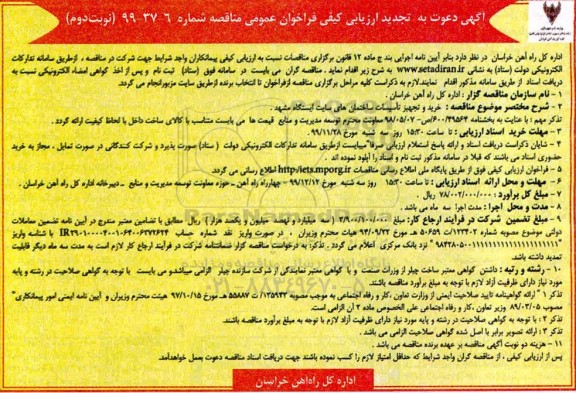 آگهی دعوت به تجدید ارزیابی کیفی فراخوان عمومی مناقصه شماره ۶-۳۷-۹۹ (نوبت‌دوم)
اداره کل راه آهن خراسان در نظر دارد بنابر آیین نامه اجرایی بند ج ماده ۱۲ قانون برگزاری مناقصات نسبت به ارزیابی کیفی پیمانکاران واجد شرایط جهت شرکت در مناقصه ، ازطریق سامانه تدارکات
الکترونیکی دولت (ستاد) به نشانی www.setadiran.ir به شرح زیر اقدام نماید . مناقصه گران می بایست در سامانه فوق (ستاد) ثبت نام و پس از اخذ گواهی امضاء الکترونیکی نسبت به
دریافت اسناد از طریق سامانه مذکور اقدام نمایند.لازم به ذکراست کلیه مراحل برگزاری مناقصه ازفراخوان تا انتخاب برنده ازطریق سایت مزبورانجام می گردد.
۱- نام سازمان مناقصه گزار : اداره کل راه آهن خراسان .
۲- شرح مختصر موضوع مناقصه : خرید و تجهیز تأسیسات ساختمان های سایت ایستگاه مشهد .
تذکر مهم : با عنایت به بخشنامه ۶۰۰/۲۹۵۶۴/ص- مورخ ۹۸/۰۵/۰۷ معاونت محترم توسعه مدیریت و منابع قیمت ها می بایست متناسب با کالای ساخت داخل با لحاظ کیفیت ارائه گردد .
۳- مهلت خرید اسناد ارزیابی : تا ساعت ۱۵:۳۰ روز سه شنبه مورخ ۹۹/۱۱/۲۸ .
۴- شایان ذکراست دریافت اسناد و ارائه پاسخ استعلام ارزیابی صرفا"میبایست ازطریق سامانه تدارکات الکترونیکی دولت ( ستاد) صورت پذیرد و شرکت کنندگانی در صورت تمایل ، مجاز به خرید
حضوری اسناد می باشند که قبلا در سامانه مذکور ثبت نام و اسناد را آپلود نموده اند .
۵- فراخوان ارزیابی کیفی فوق از طریق پایگاه ملی اطلاع رسانی مناقصات http://iets.mporg.ir اطلاع رسانی می گردد.
۶- مهلت و محل ارائه اسناد ارزیابی : تا ساعت ۱۵:۳۰ روز سه شنبه مورخ ۹۹/۱۲/۱۲ -چهارراه راه آهن - حوزه معاونت توسعه مدیریت و منابع - دبیرخانه اداره کل راه آهن خراسان .
۷- مبلغ کل برآورد : ۷۸/۰۰۲/۰۰۰/۰۰۰ ریال می باشد .
۸- مدت و محل اجرا : مدت اجرا سه ماه می باشد .
۹- مبلغ تضمین شرکت در فرآیند ارجاع کار: مبلغ ۳/۹۰۰/۱۰۰/۰۰۰ (سه میلیارد و نهصد میلیون و یکصد هزار) ریال مطابق با تضامین معتبر مندرج در آیین نامه تضمین معاملات
دولتی موضوع مصوبه شماره ۱۲۳۴۰۲/ت ۵۰۶۵۹ هـ مورخ ۹۴/۰۹/۲۲ هیات محترم وزیران ، در صورت واریز نقد شماره حساب
نزد بانک مرکزی اعلام می گردد . تذکر: به درخواست مناقصه گزار ضمانتنامه شرکت در فرآیند ارجاع کار لازم است به مدت سه ماه دیگر قابلیت
تمدید داشته باشد.
۱۰- رشته و رتبه : داشتن گواهی معتبر ساخت چیلر از وزرات صنعت و یا گواهی معتبر نمایندگی از شرکت سازنده چیلر الزامی میباشدو می بایست با توجه به گواهی صلاحیت در رشته و پایه
مورد نیاز دارای ظرفیت آزاد لازم با توجه به مبلغ برآورد مناقصه باشند.
تذکر ۱ " ارائه گواهینامه تایید صلاحیت ایمنی از وزارت تعاون ،کار و رفاه اجتماعی به موجب مصوبه ۱۲۵۹۳۳/ ت ۵۵۸۸۷ هـ مورخ ۹۷/۱۰/۱۵ هیئت محترم وزیران و آیین نامه ایمنی امور پیمانکاری"
مصوب ۸۹/۰۳/۰۵ وزیر تعاون ،کار و رفاه اجتماعی علی الخصوص ماده ۲ آن الزامی است.
تذکر ۲ : با توجه به گواهی صلاحیت در رشته و پایه مورد نیاز دارای ظرفیت آزاد لازم با توجه به مبلغ برآورد مناقصه باشند.
تذکر ۳ : ارائه تصویر برابر با اصل شده گواهی صلاحیت الزامی می باشد .
۱۱ – هزینه دو نوبت آگهی مناقصه بر عهده برنده مناقصه می باشد .
پس از ارزیابی کیفی ، از مناقصه گران واجد شرایط که حداقل امتیاز لازم را کسب نموده باشند جهت دریافت اسناد مناقصه دعوت بعمل خواهدآمد.
اداره کل راه‌آهن خراسان